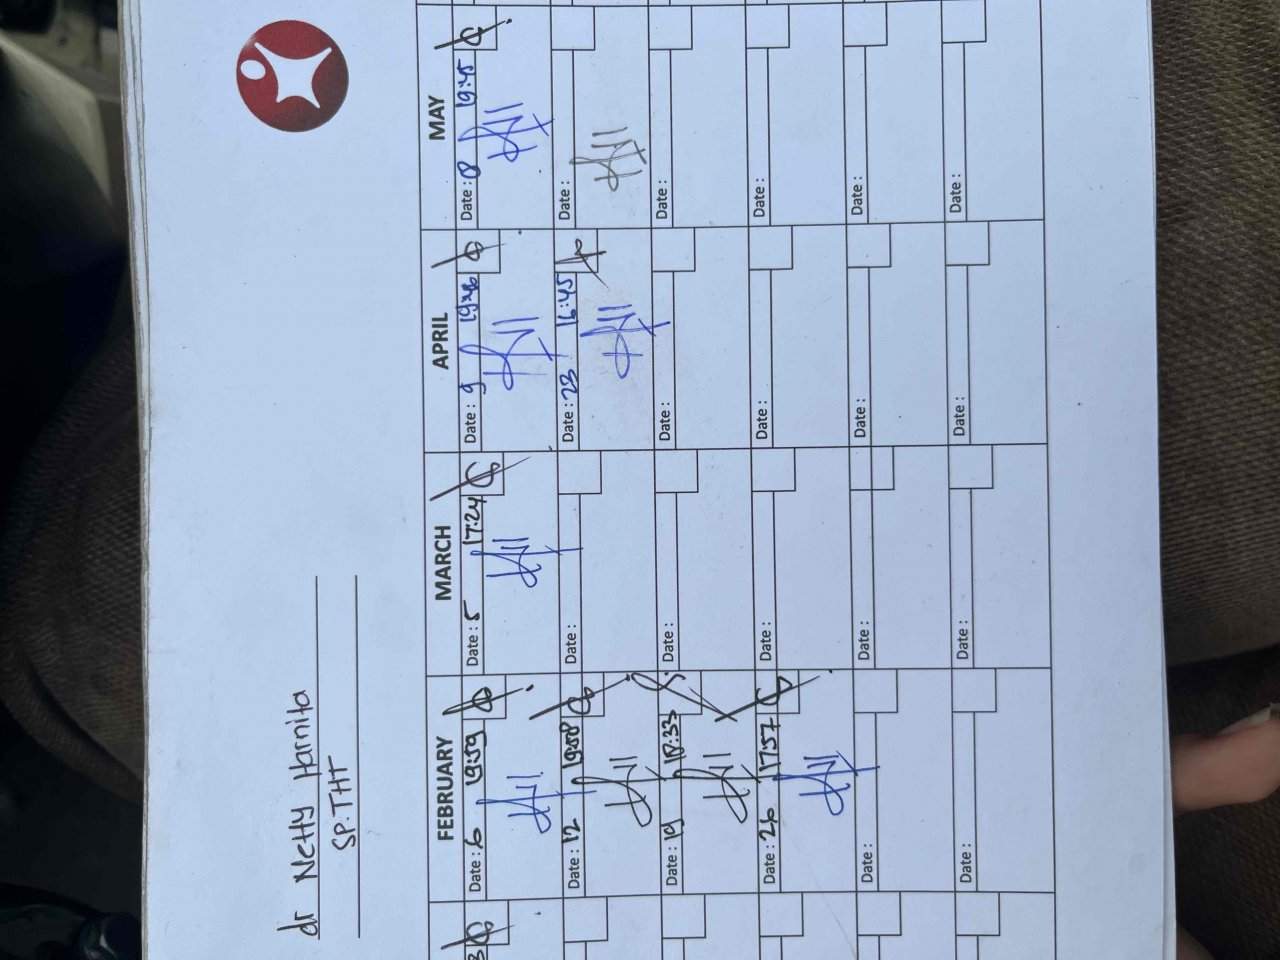 dr Netty Harnita
SP.THT
FEBRUARY MARCH APRIL MAY
Date : 6 19:59
Date : 5 17:24
Date : 9 19:46
Date : 8 19:45
Date : 12 19:58
Date :
Date : 23 16:45
Date :
Date : 19 18:33
Date :
Date :
Date :
Date : 26 17:57
Date :
Date :
Date :
Date :
Date :
Date :
Date :
Date :
Date :
Date :
Date :